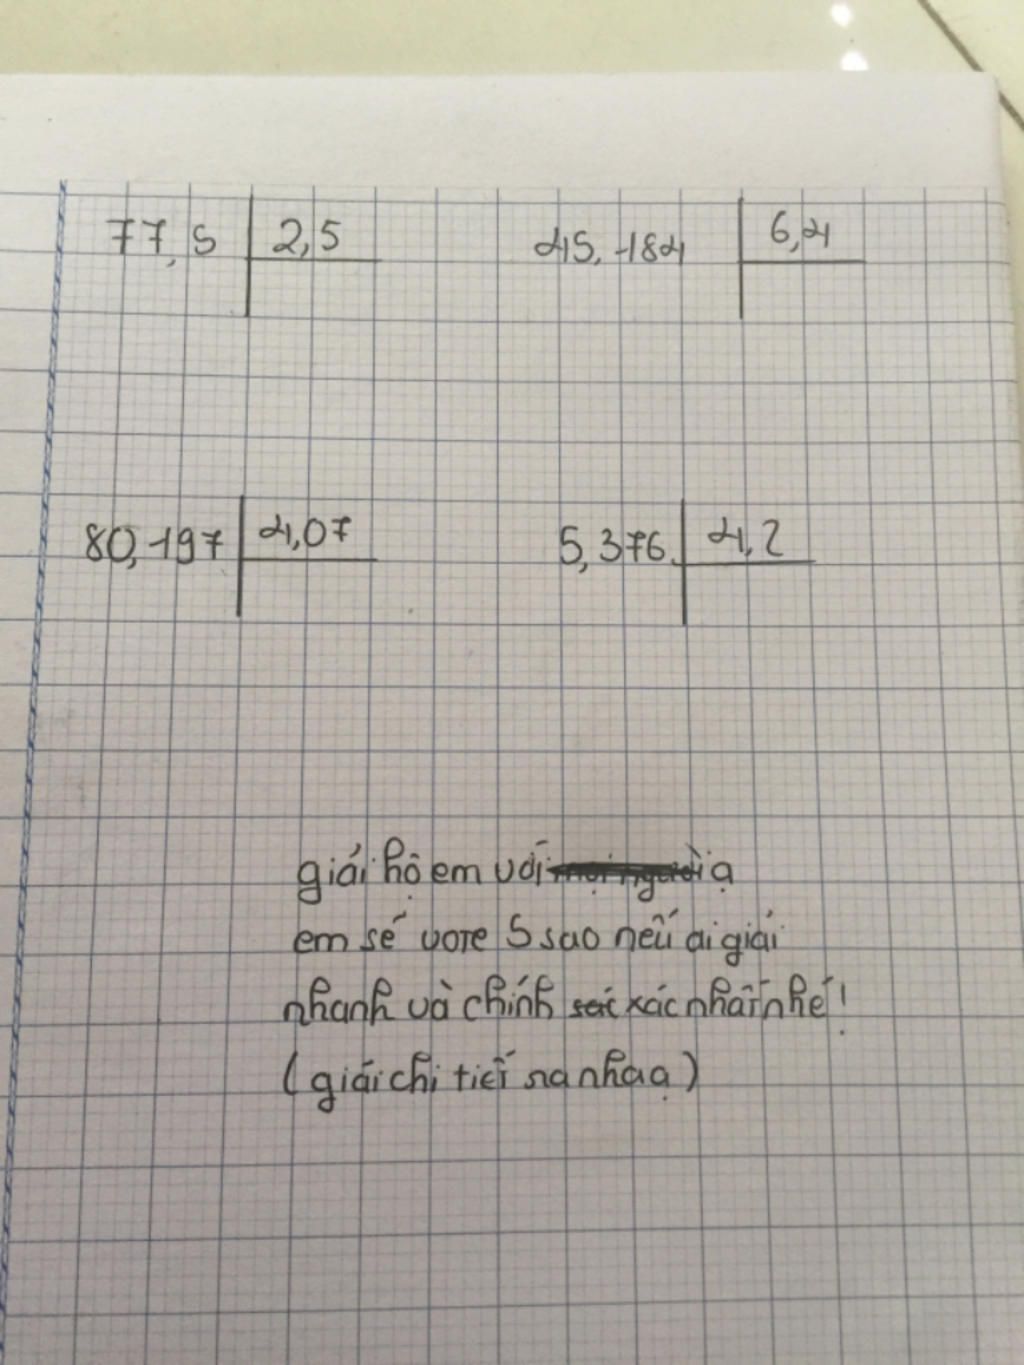 77,5 2,5 45,184 6,4
80,197 4,07 5,376 4,2
giải hộ em với ạ
em sẽ vote 5 sao nếu ai giải
nhanh và chính xác nhất nhé!
(giải chi tiết ra nha ạ)